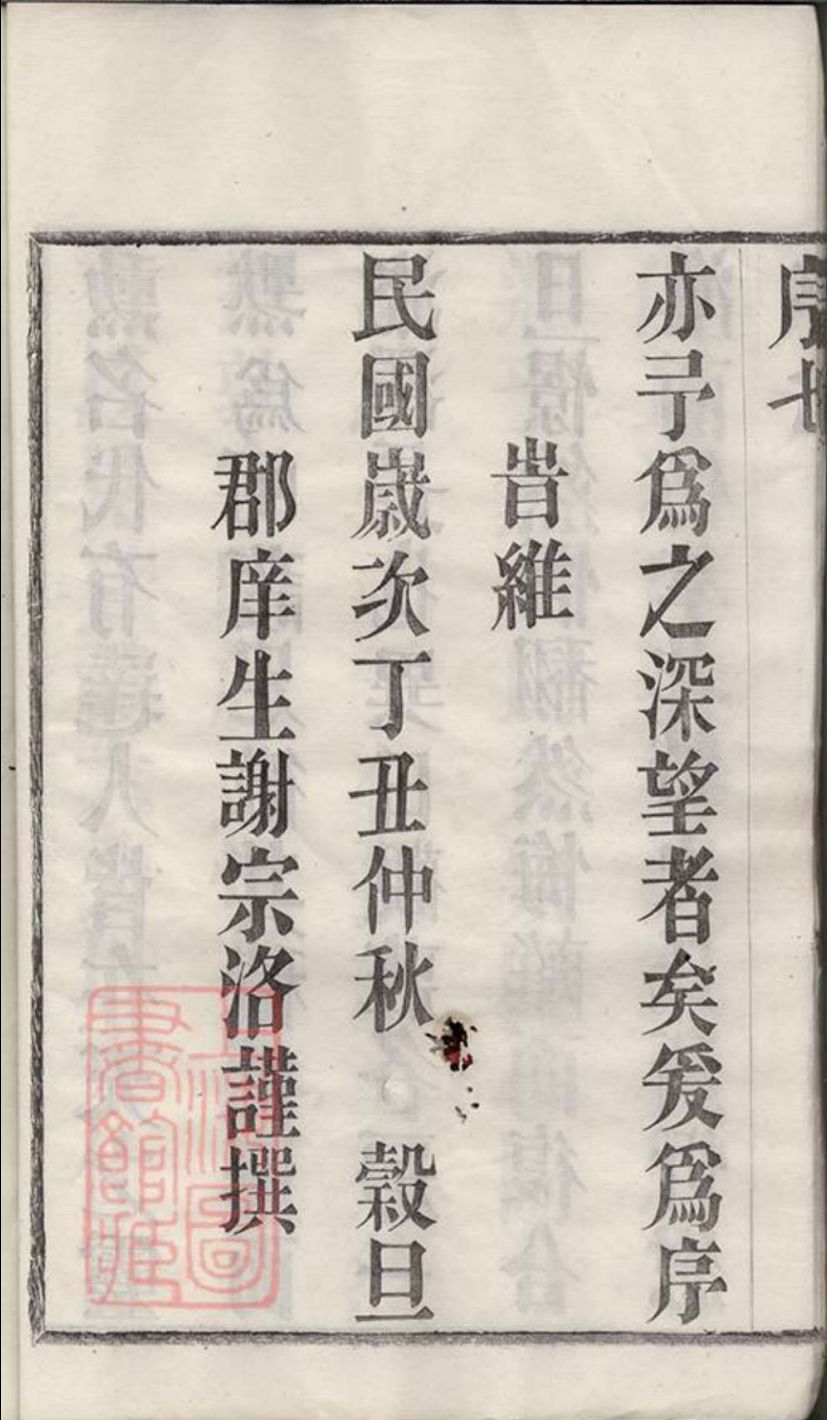 序
亦予爲之深望者矣爰爲序
旹維
民國歲次丁丑仲秋　穀旦
郡庠生謝宗洛謹撰
上海圖書館藏